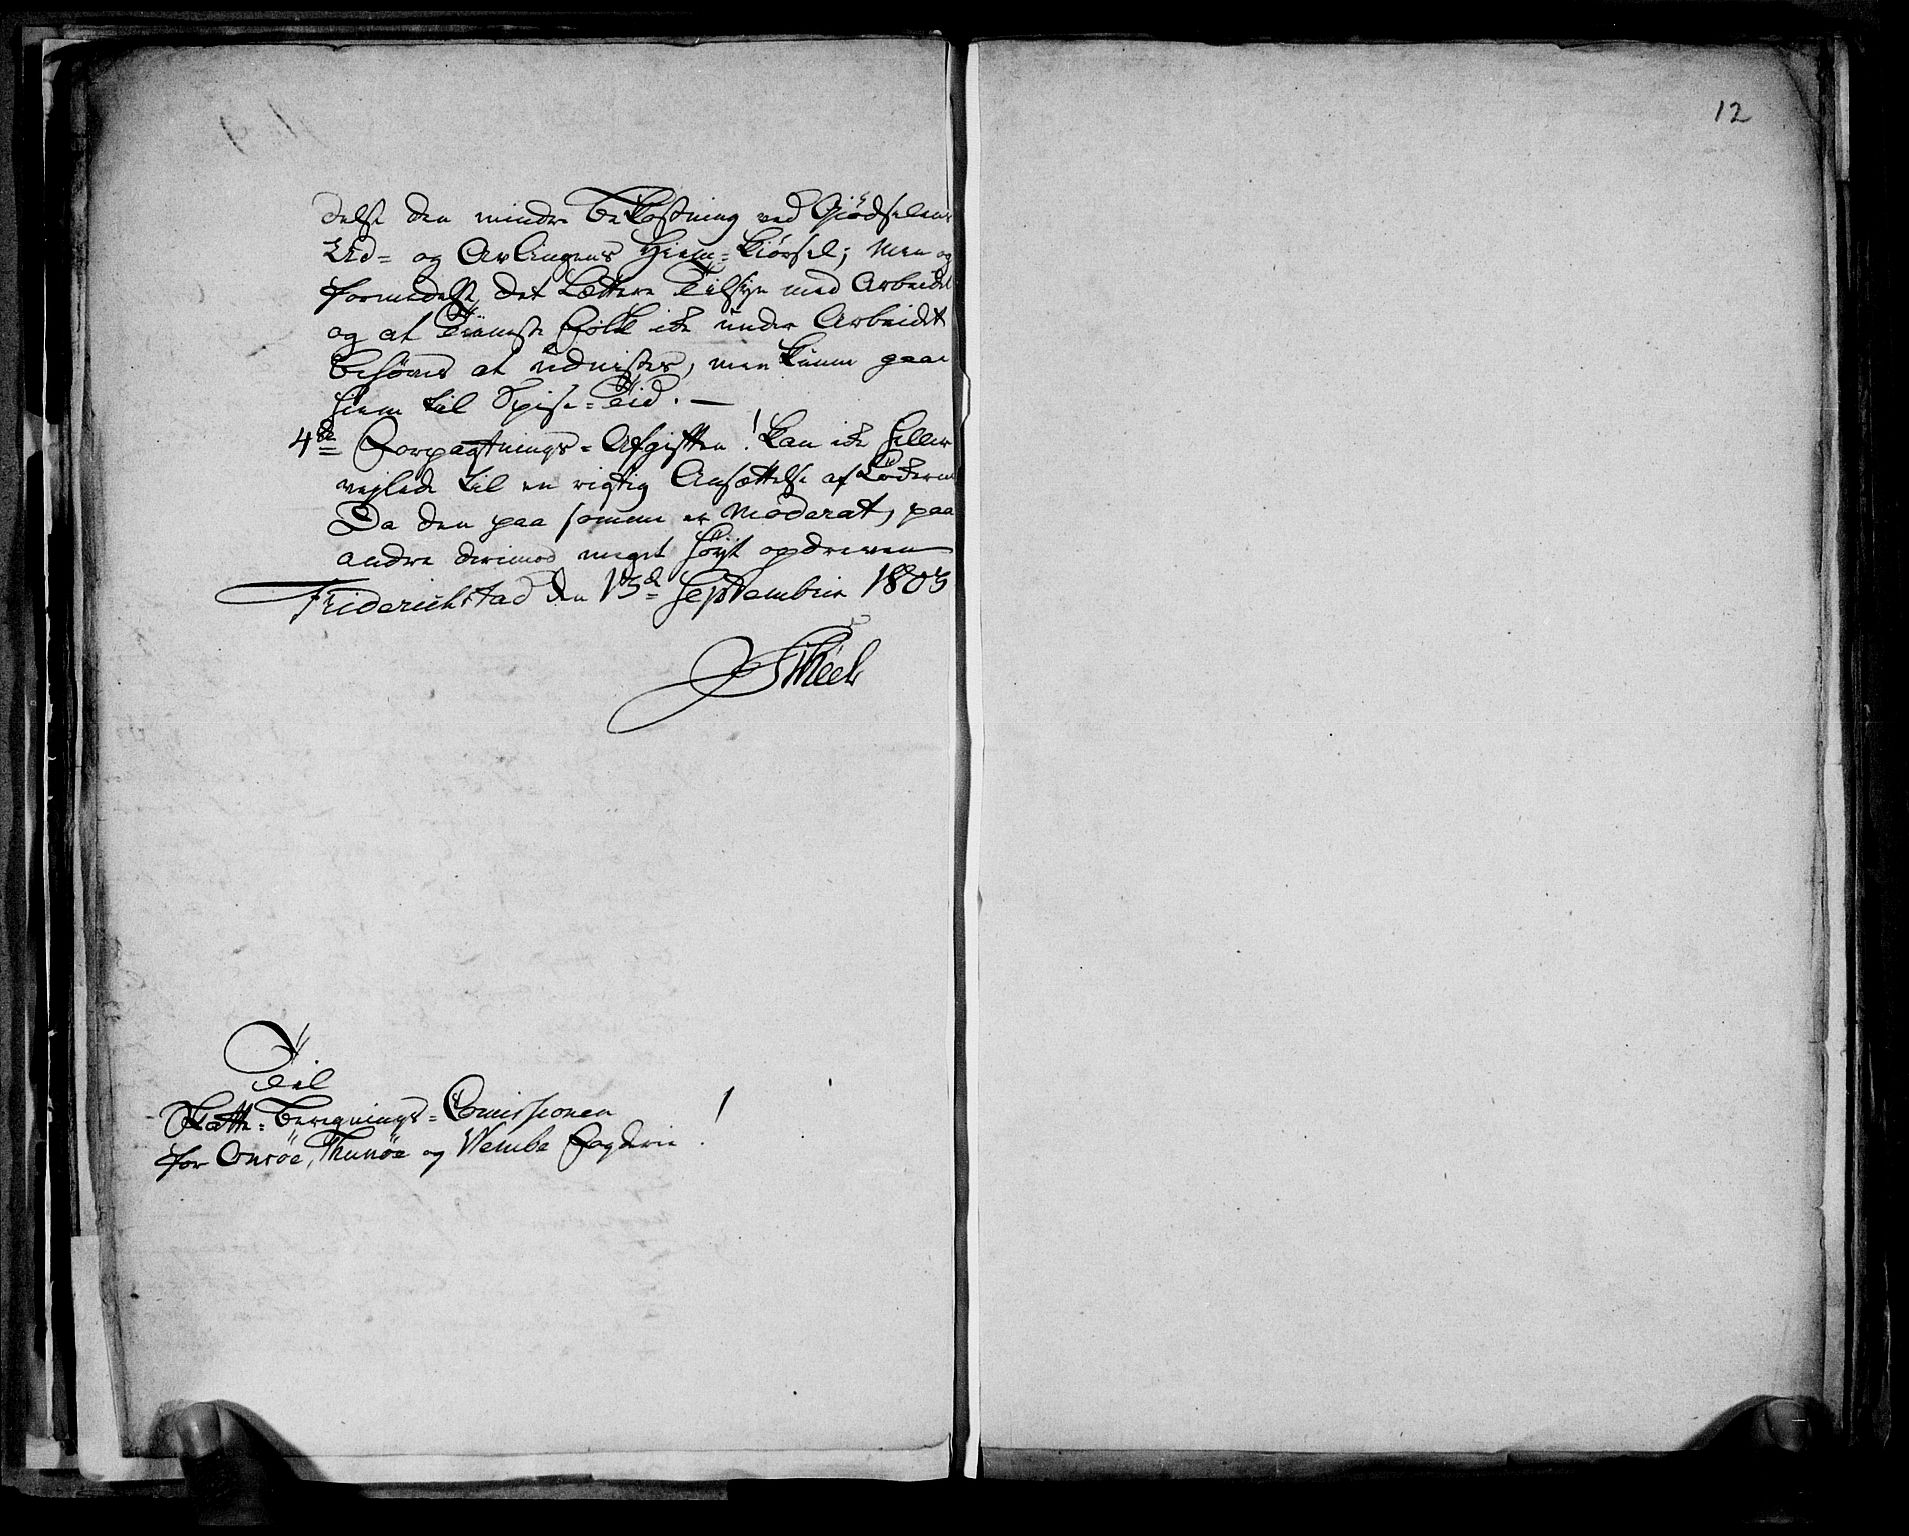 12
delse den mindre Bekostning ved Giødselens
Ud- og Avlingens Hiem-Kiørsel; Men og
formedelst det lættere Tilsyn med Arbeidet
og at Tieneste Folk ikke under Arbeidet
behøves at udnistes, men kunne gaae
hiem til Spise-Tid. —
4de Forpagtnings-Afgiften! kan ikke heller
vejlede til en rigtig Ansættelse af Løderne
Da den paa somme er moderat, paa
andre derimod meget høyt opdreven
Friderichstad den 15de Septembris 1803
Til
Skatte-Beregnings-Comissionen
for Onsøe, Thunøe og Wembe Fogderie!